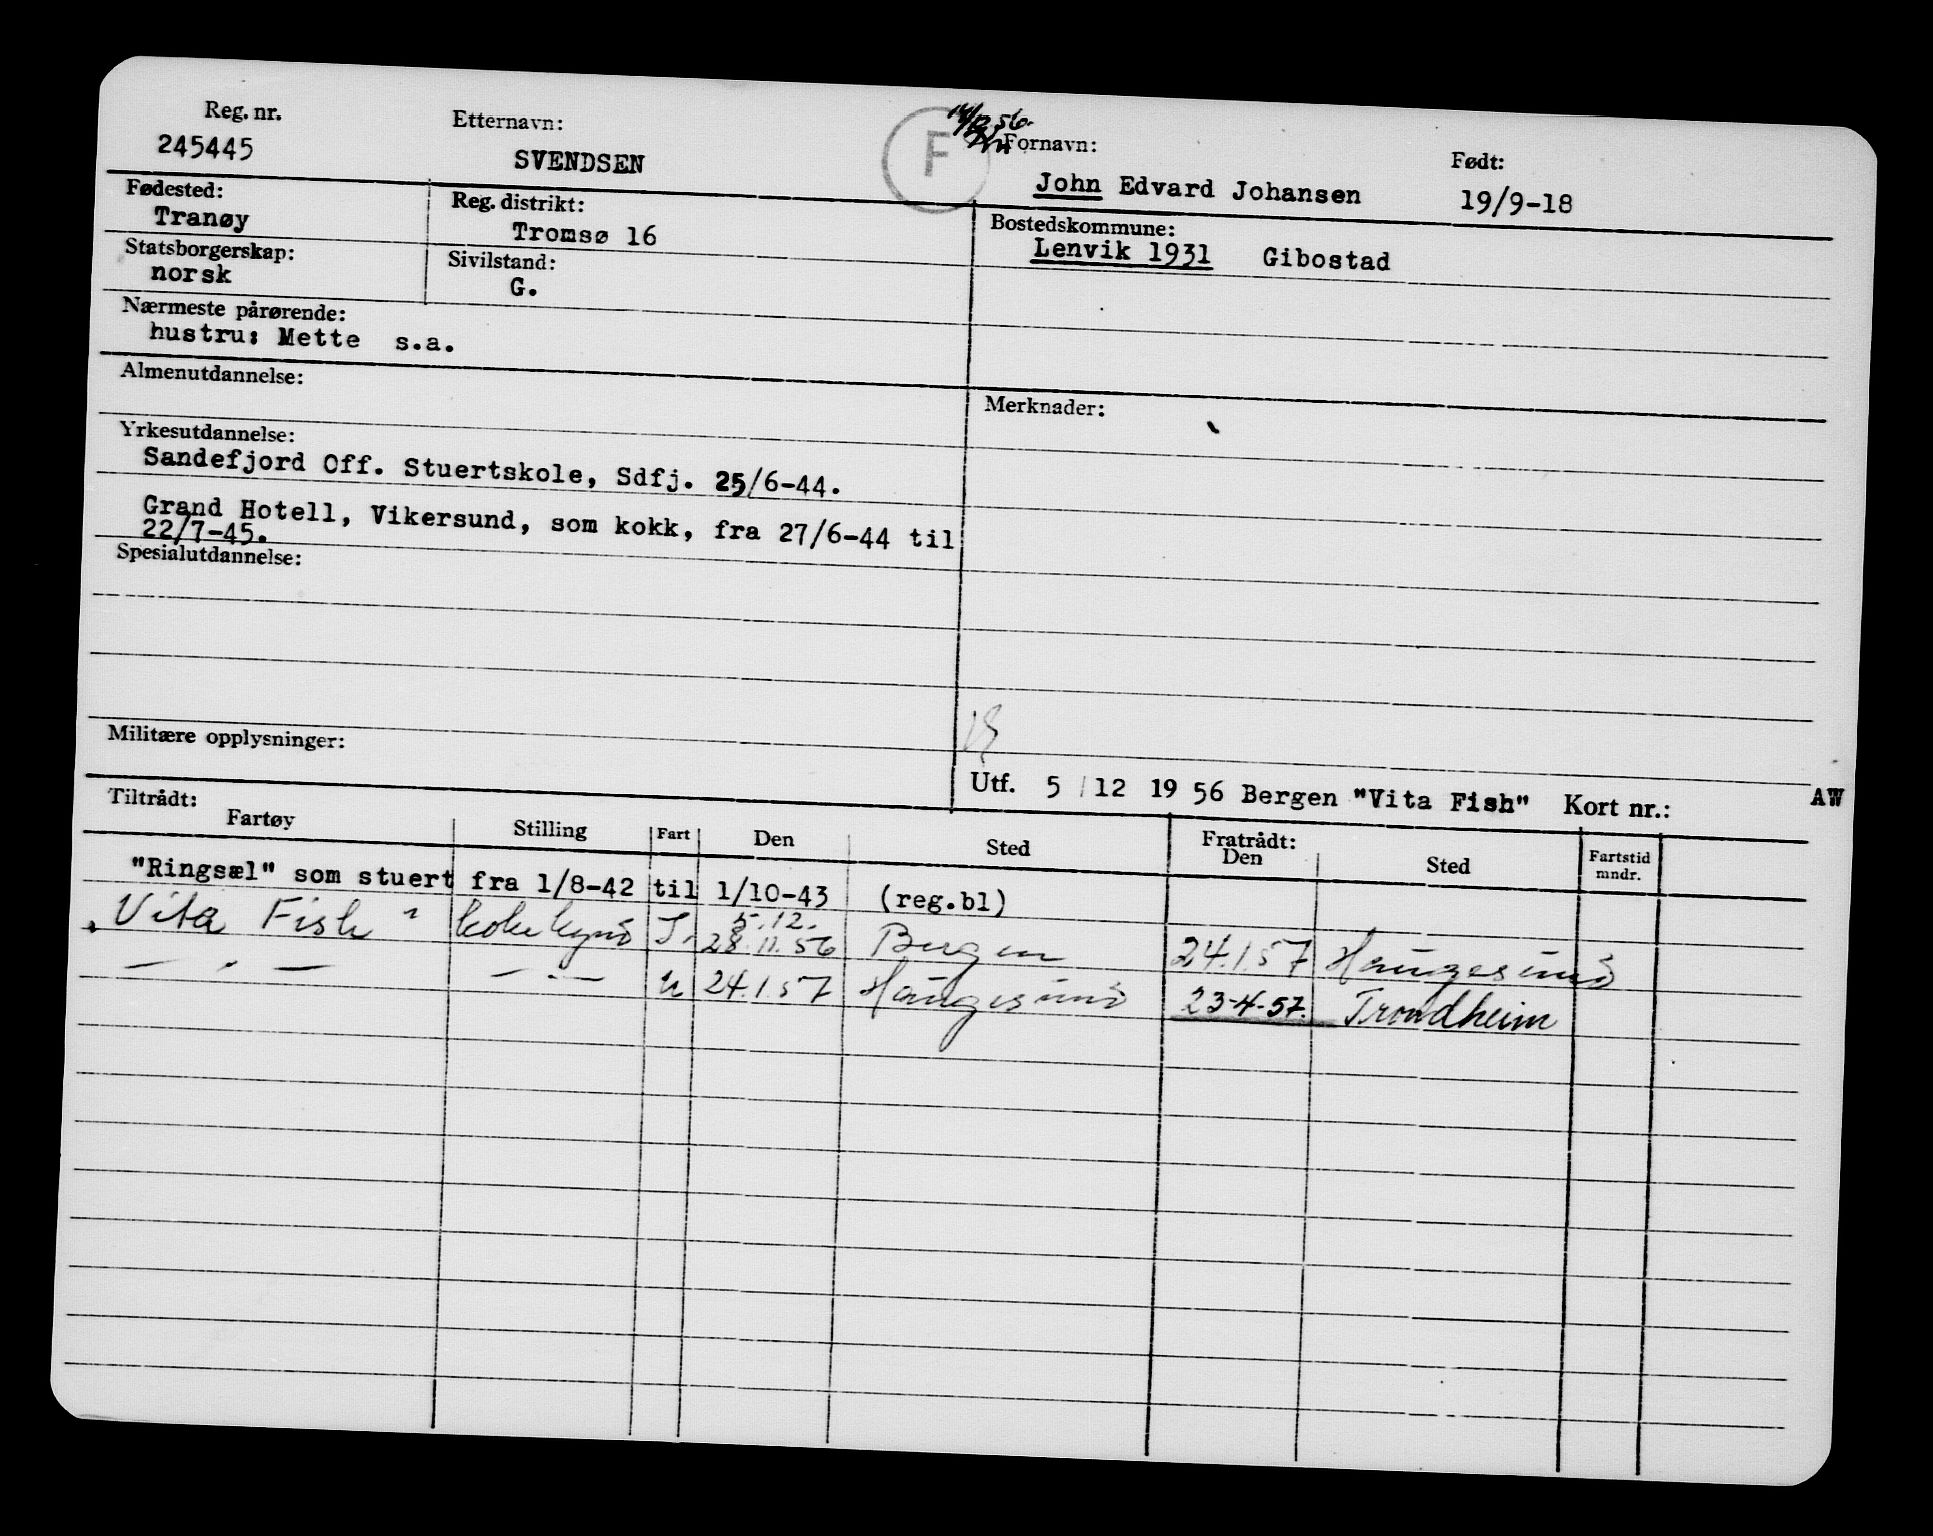 Reg. nr. Etternavn: F 56. Fornavn: Født:
245445 SVENDSEN John Edvard Johansen 19/9-18
Fødested: Reg. distrikt: Bostedskommune:
Tranøy Tromsø 16 Lenvik 1931 Gibostad
Statsborgerskap: Sivilstand:
norsk G.
Nærmeste pårørende:
hustru: Mette s.a.
Almenutdannelse: Merknader:
Yrkesutdannelse:
Sandefjord Off. Stuertskole, Sdfj. 25/6-44.
Grand Hotell, Vikersund, som kokk, fra 27/6-44 til
22/7-45.
Spesialutdannelse:
Militære opplysninger:
Utf. 5/12 1956 Bergen "Vita Fish" Kort nr.: AW
Tiltrådt: Fratrådt:
Fartøy Stilling Fart Den Sted Den Sted Fartstid mndr.
"Ringsæl" som stuert fra 1/8-42 til 1/10-43 (reg.bl)
5.12.
"Vita Fish" 28.11.56 Bergen 24.1.57 Haugesund
— " — — " — u 24.1.57 Haugesund 23-4-57. Trondheim